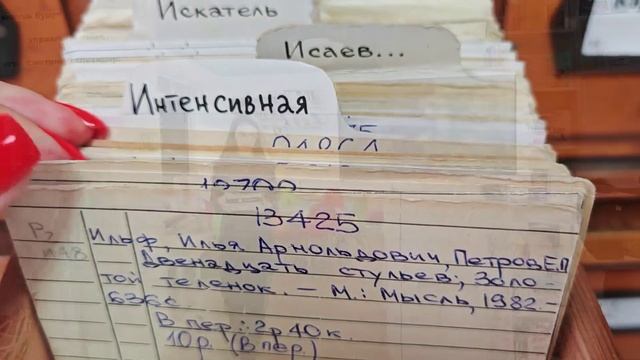 Искатель
Исаев...
Интенсивная
13700
13425
Р2
Ильф, Илья Арнольдович, Петров Е.П.
Двенадцать стульев; Золо-
той теленок. – М.: Мысль, 1982.–
636с.
В пер.: 2р 40 к.
10р. (В пер.)